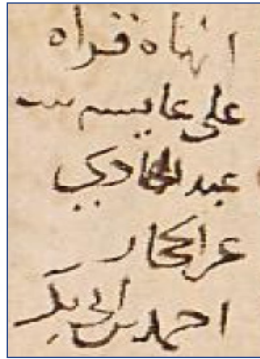 انهاه قراه
على عايسه بنت
عبد الهادي
عن الحجار
احمد بن ابي بكر